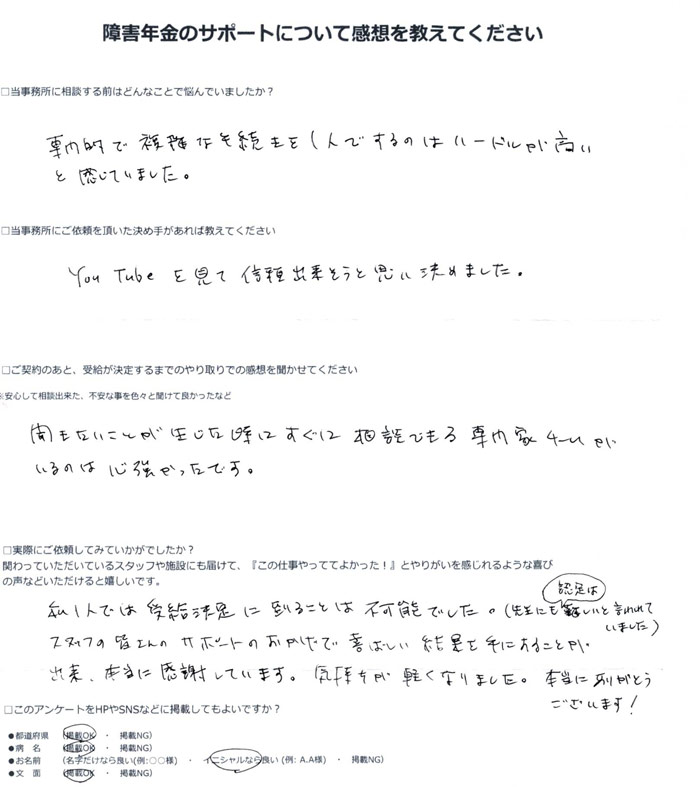 障害年金のサポートについて感想を教えてください
□当事務所に相談する前はどんなことで悩んでいましたか？
専門的で複雑な手続きを1人でするのはハードルが高い
と感じていました。
□当事務所にご依頼を頂いた決め手があれば教えてください
YouTubeを見て信頼出来そうと思い決めました。
□ご契約のあと、受給が決定するまでのやり取りでの感想を聞かせてください
※安心して相談出来た、不安な事を色々と聞けて良かったなど
聞きたいことが生じた時にすぐに相談できる専門家チームが
いるのは心強かったです。
□実際にご依頼してみていかがでしたか？
関わっていただいているスタッフや施設にも届けて、『この仕事やっててよかった！』とやりがいを感じれるような喜び
の声などいただけると嬉しいです。
認定は
私1人では受給決定に到ることは不可能でした。(先生にも難しいと言われて
いました)
スタッフの皆さんのサポートのおかげで喜ばしい結果を手にすることが
出来、本当に感謝しています。気持ちが軽くなりました。本当にありがとう
ございます!
□このアンケートをHPやSNSなどに掲載してもよいですか？
●都道府県 （掲載OK ・ 掲載NG）
●病 名 （掲載OK ・ 掲載NG）
●お名前 （名字だけなら良い(例:○○様) ・ イニシャルなら良い (例: A.A様) ・ 掲載NG）
●文 面 （掲載OK ・ 掲載NG）